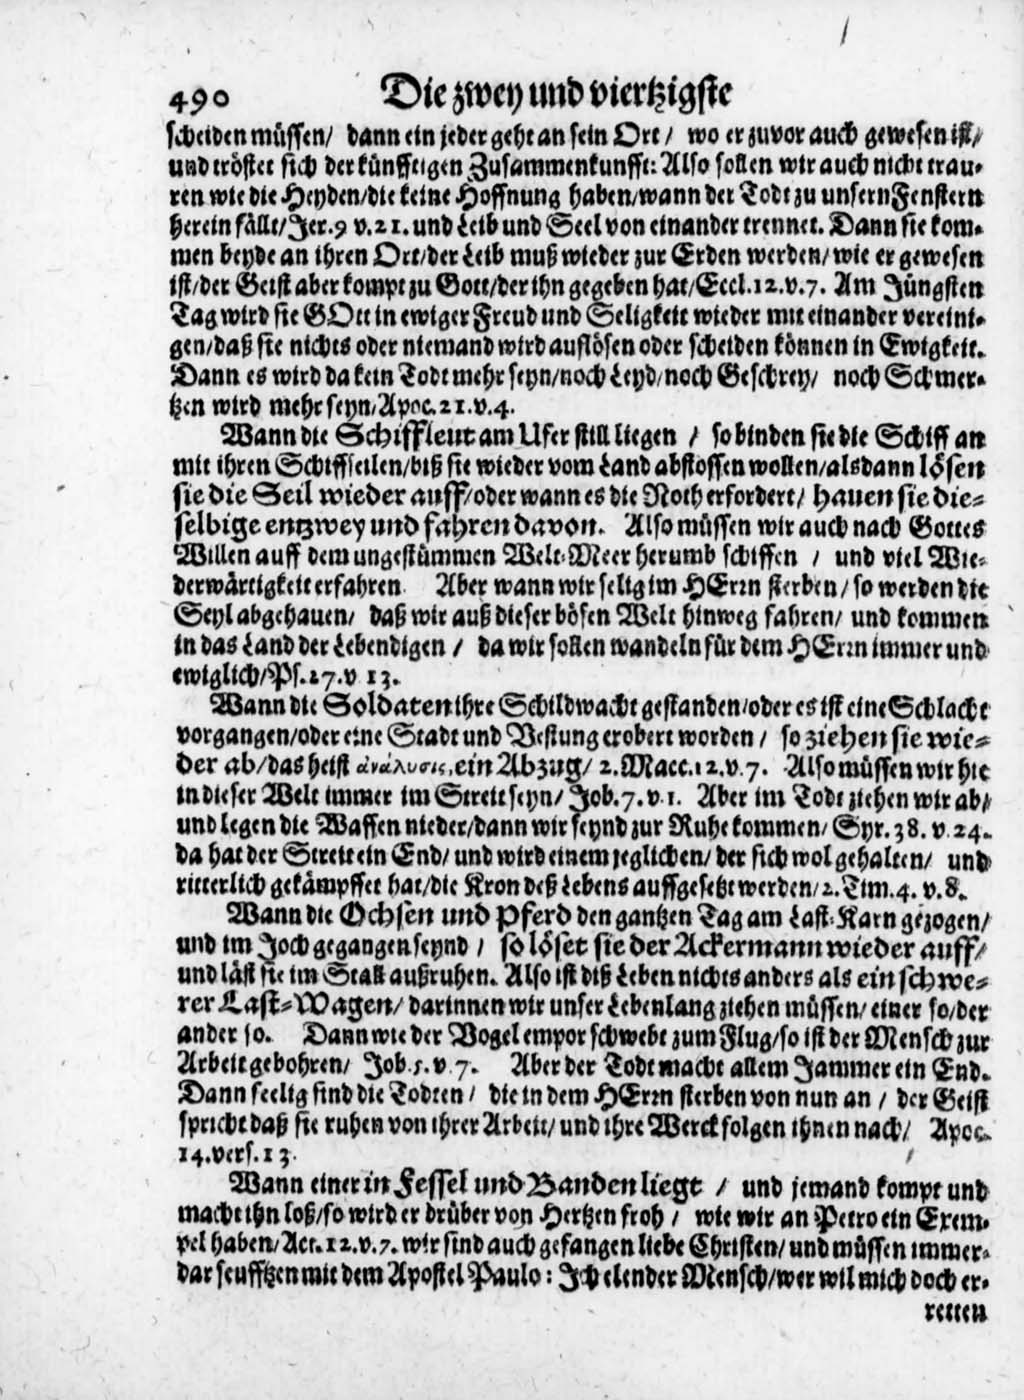 490 Die zwey und viertzigste
scheiden müssen/ dann ein jeder geht an sein Ort / wo er zuvor auch gewesen ist/
und tröstet sich der künfftigen Zusammenkunfft: Also sollen wir auch nicht trau-
ren wie die Heyden/die keine Hoffnung haben/wann der Todt zu unsern Fenstern
herein fällt/Jer.9 v.21. und Leib und Seel von einander trennet. Dann sie kom-
men beyde an ihren Ort/der Leib muß wieder zur Erden werden/wie er gewesen
ist/der Geist aber kompt zu Gott/der ihn gegeben hat/Eccl.12.v.7. Am Jüngsten
Tag wird sie GOtt in ewiger Freud und Seligkeit wieder mit einander vereini-
gen/daß sie nichts oder niemand wird auflösen oder scheiden können in Ewigkeit.
Dann es wird da kein Todt mehr seyn/noch Leyd/noch Geschrey/ noch Schmer-
tzen wird mehr seyn/Apoc.21.v.4.
Wann die Schiffleut am Ufer still liegen / so binden sie die Schiff an
mit ihren Schiffseilen/biß sie wieder vom Land abstossen wollen/alsdann lösen
sie die Seil wieder auff/oder wann es die Noth erfordert/ hauen sie die-
selbige entzwey und fahren davon. Also müssen wir auch nach Gottes
Willen auff dem ungestümmen Welt-Meer herumb schiffen / und viel Wie-
derwärtigkeit erfahren. Aber wann wir selig im HErrn sterben/ so werden die
Seyl abgehauen/ daß wir auß dieser bösen Welt hinweg fahren/ und kommen
in das Land der Lebendigen / da wir sollen wandeln für dem HErrn immer und
ewiglich/Ps.27.v 13.
Wann die Soldaten ihre Schildwacht gestanden/oder es ist eine Schlacht
vorgangen/oder eine Stadt und Vestung erobert worden / so ziehen sie wie-
der ab/das heist ἀνάλυσις, ein Abzug/ 2. Macc.12.v.7. Also müssen wir hie
in dieser Welt immer im Streit seyn/ Job.7.v.1. Aber im Todt ziehen wir ab/
und legen die Waffen nieder/dann wir seynd zur Ruhe kommen/ Syr.38. v.24.
da hat der Streit ein End/ und wird einem jeglichen/ der sich wol gehalten/ und
ritterlich gekämpffet hat/die Kron deß Lebens auffgesetzt werden/2.Tim.4. v.8.
Wann die Ochsen und Pferd den gantzen Tag am Last-Karn gezogen/
und im Joch gegangen seynd / so löset sie der Ackermann wieder auff/
und läst sie im Stall außruhen. Also ist diß Leben nichts anders als ein schwe-
rer Last-Wagen/ darinnen wir unser Lebenlang ziehen müssen/ einer so/der
ander so. Dann wie der Vogel empor schwebt zum Flug/so ist der Mensch zur
Arbeit gebohren/ Job.5.v.7. Aber der Todt macht allem Jammer ein End.
Dann seelig sind die Todten / die in dem HErrn sterben von nun an / der Geist
spricht daß sie ruhen von ihrer Arbeit/ und ihre Werck folgen ihnen nach/ Apoc.
14.vers.13.
Wann einer in Fessel und Banden liegt / und jemand kompt und
macht ihn loß/so wird er drüber von Hertzen froh / wie wir an Petro ein Exem-
pel haben/Act.12.v.7. wir sind auch gefangen liebe Christen/ und müssen immer-
dar seufftzen mit dem Apostel Paulo: Ich elender Mensch/wer wil mich doch er-
retten